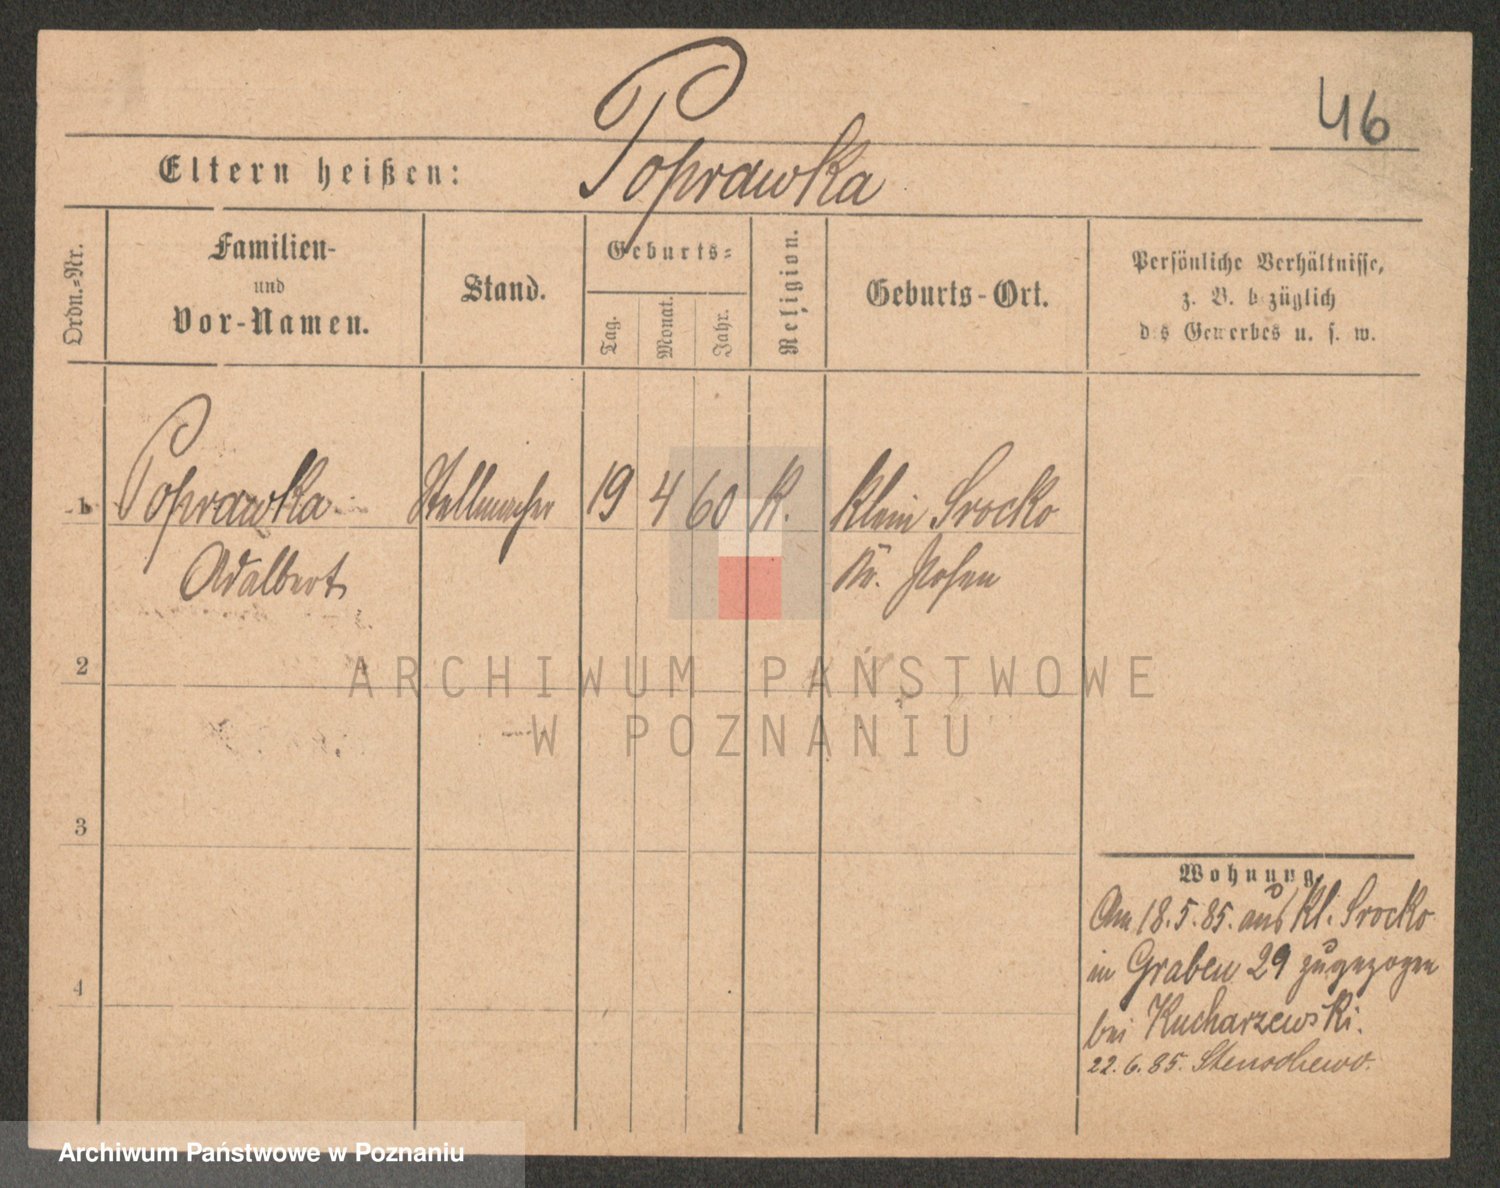 46
Poprawka
Eltern heißen:
Ordn.-Nr.
Familien-
und
Vor-Namen.
Stand.
Geburts-
Tag.
Monat.
Jahr.
Religion.
Geburts-Ort.
Persönliche Verhältnisse,
z. B. bezüglich
des Gewerbes u. s. w.
1 Poprawka Stellmacher 19 4 60 K. Klein Srocko
Adalbert Kr. Posen
2
ARCHIWUM PAŃSTWOWE
W POZNANIU
3
4
Wohnung.
Am 18.5.85. aus Kl. Srocko
in Graben 29 zugezogen
bei Kucharzewski.
22.6.85.
Archiwum Państwowe w Poznaniu